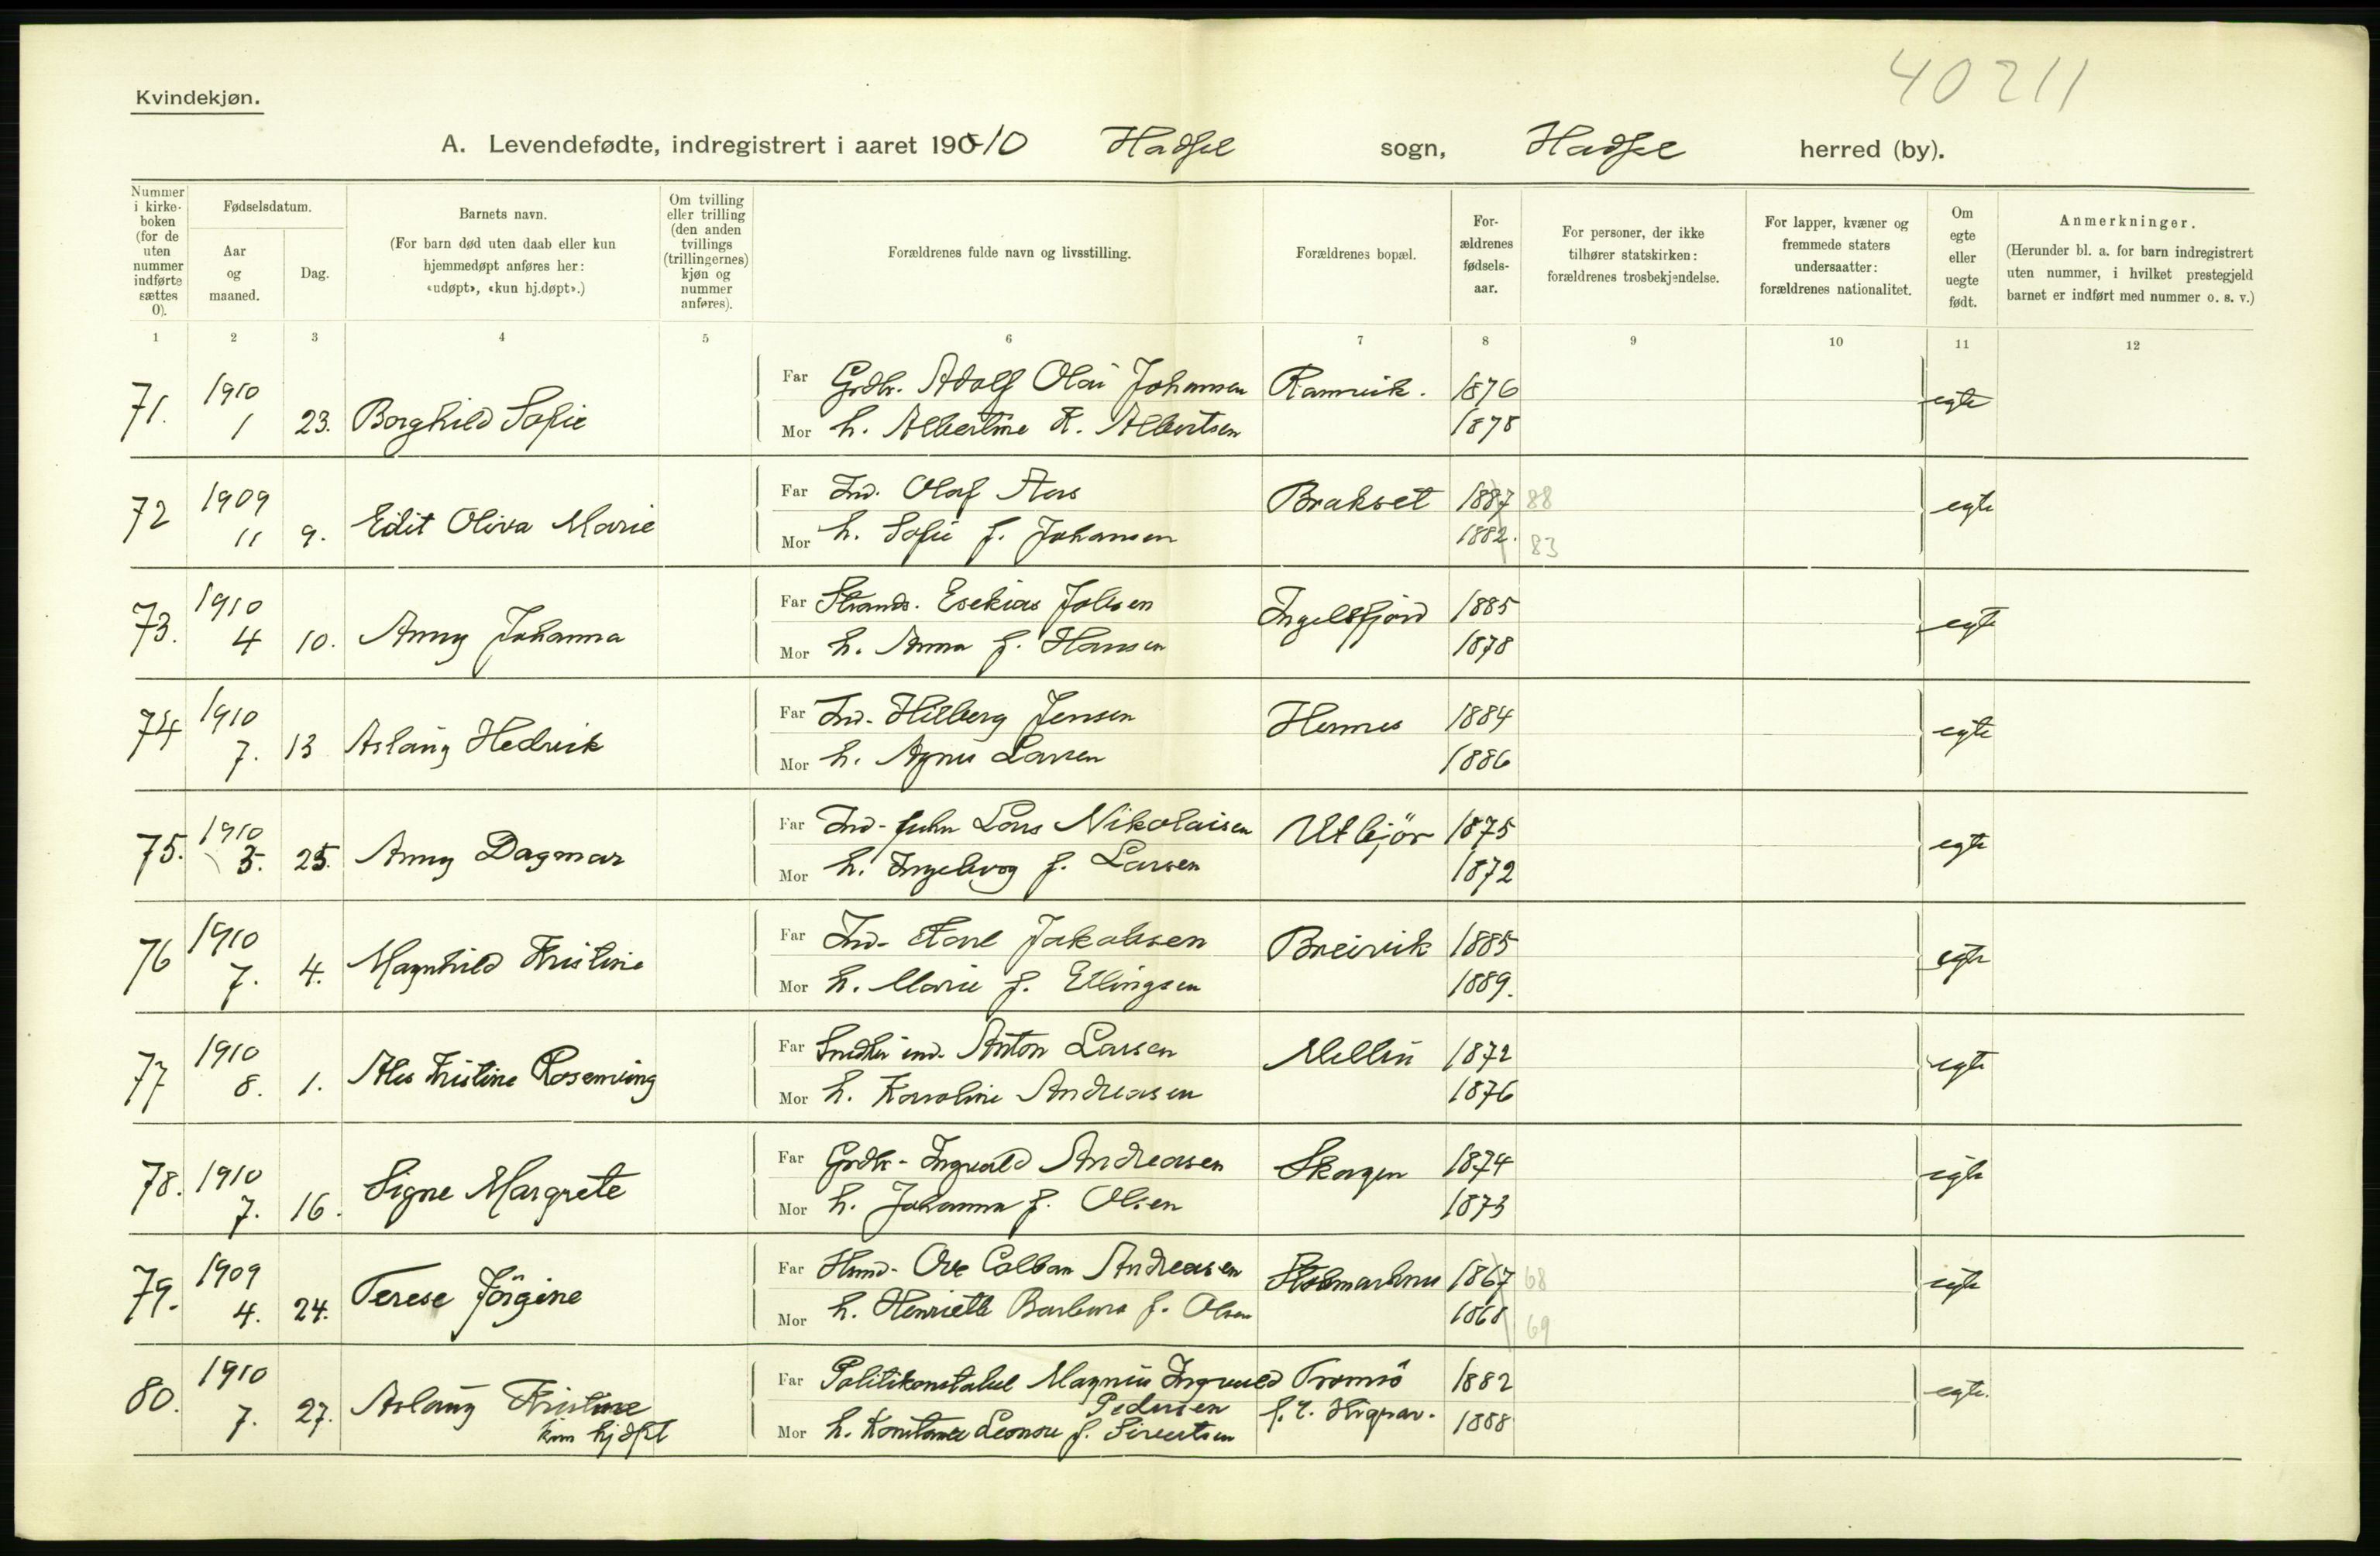 40211
Kvindekjøn.
A. Levendefødte, indregistrert i aaret 190-10 Hadsel sogn, Hadsel herred (by).
Nummer i kirke-boken (for de uten nummer indførte sættes 0).
Fødselsdatum.
Aar og maaned.
Dag.
Barnets navn.
(For barn død uten daab eller kun hjemmedøpt anføres her: «udøpt», «kun hj.døpt».)
Om tvilling eller trilling (den anden tvillings (trillingernes) kjøn og nummer anføres).
Forældrenes fulde navn og livsstilling.
Forældrenes bopæl.
For-ældrenes fødsels-aar.
For personer, der ikke tilhører statskirken: forældrenes trosbekjendelse.
For lapper, kvæner og fremmede staters undersaatter: forældrenes nationalitet.
Om egte eller uegte født.
Anmerkninger.
(Herunder bl. a. for barn indregistrert uten nummer, i hvilket prestegjeld barnet er indført med nummer o. s. v.)
1 2 3 4 5 6 7 8 9 10 11 12
71. 1910 1 23. Borghild Sofie
Far Grdbr. Adolf Olai Johansen Ramvik. 1876 egte
Mor h. Albertine K. Albertsen 1878
72 1909 11 9. Edit Oliva Marie
Far Ind. Olaf Aas Brakset 1887 88 egte
Mor h. Sofie f. Johansen 1882. 83
73. 1910 4 10. Anny Johanna
Far Strands. Esekias Jolsen Ingelsfjord 1885 egte
Mor h. Anna f. Hansen 1878
74 1910 7. 13 Aslaug Hedvik
Far Ind. Hilberg Jensen Hennes 1884 egte
Mor h. Agnes Larsen 1886
75. 1910 5. 25. Anny Dagmar
Far Ind- Lars Nikolaisen Utbjör 1875 egte
Mor h. Ingebrog f. Larsen 1872
76 1910 7. 4. Magnhild Kristine
Far Ind- Karl Jakobsen Breivik 1885 egte
Mor h. Marie f. Ellingsen 1889.
77 1910 8. 1. Kristine
Far ind. Anton Larsen 1872 egte
Mor h. Karoline Andreasen 1876
78. 1910 7. 16. Signe Margrete
Far Grdbr- Ingvald Andreasen Skagen 1874 egte
Mor h. Johanna f. Olsen 1873
79. 1909 4. 24. Terese Jörgine
Far Ove Colban Andreasen 1867 68 egte
Mor h. Henriette Barbara f. Olsen 1868 69
80. 1910 7. 27. Aslaug Kristine
kun hjdøpt
Far Politikonstabel Magnus Ingvald Tromsö 1882 egte.
Pedersen
Mor h. Konstance Leonore f. Sivertsen 1888